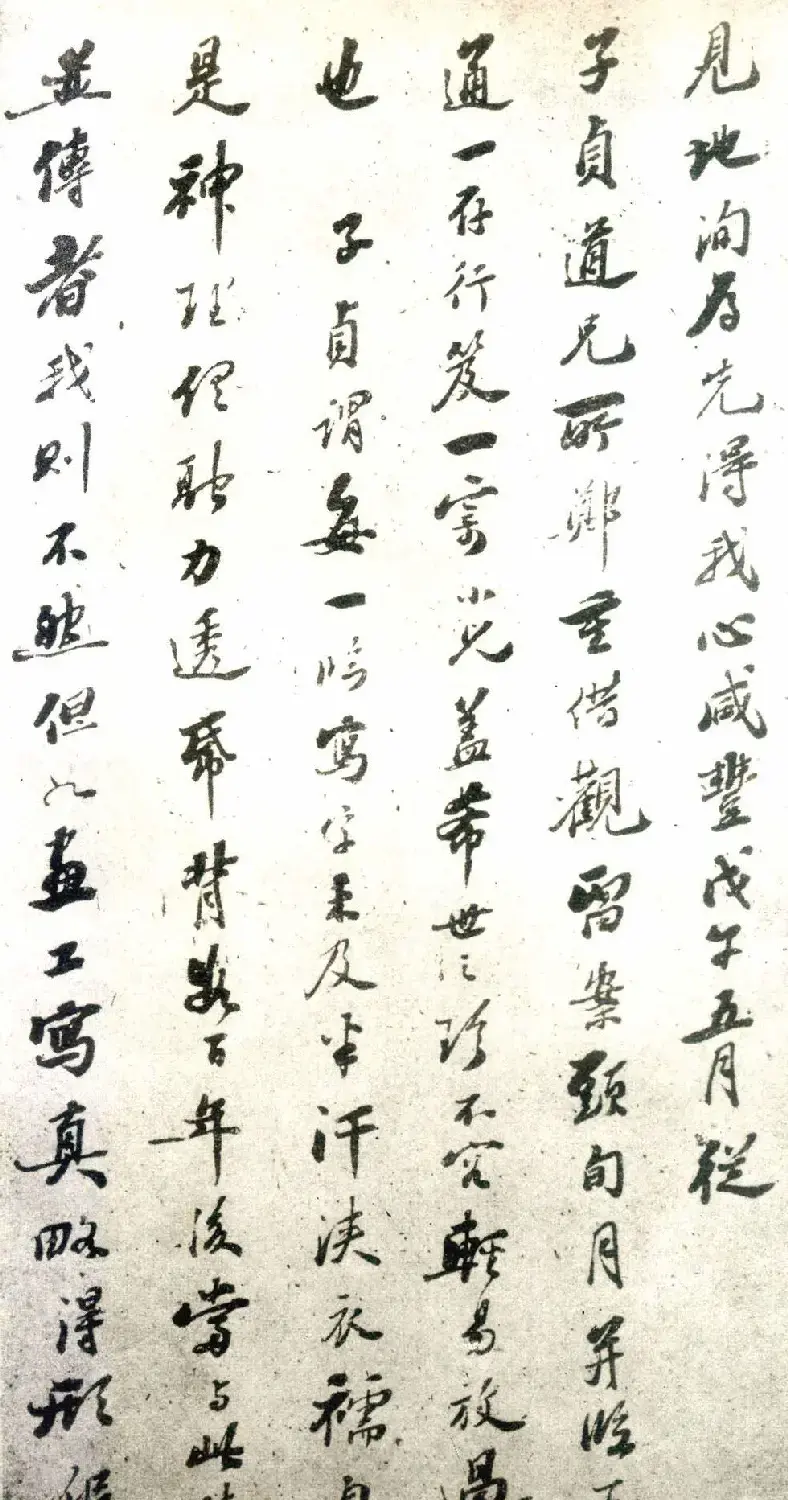 見地洵為先得我心咸豐戊午五月從
子貞道兄所鄭重借觀留案頭旬月并臨
通一存行笈一寄小兒蓋希世之珍不容輕易放過
也 子貞謂每一臨寫字未及半汗浹衣襦
是神理俱融力透紙背數百年後當与此
並傳者我則不然但如畫工寫真略得形